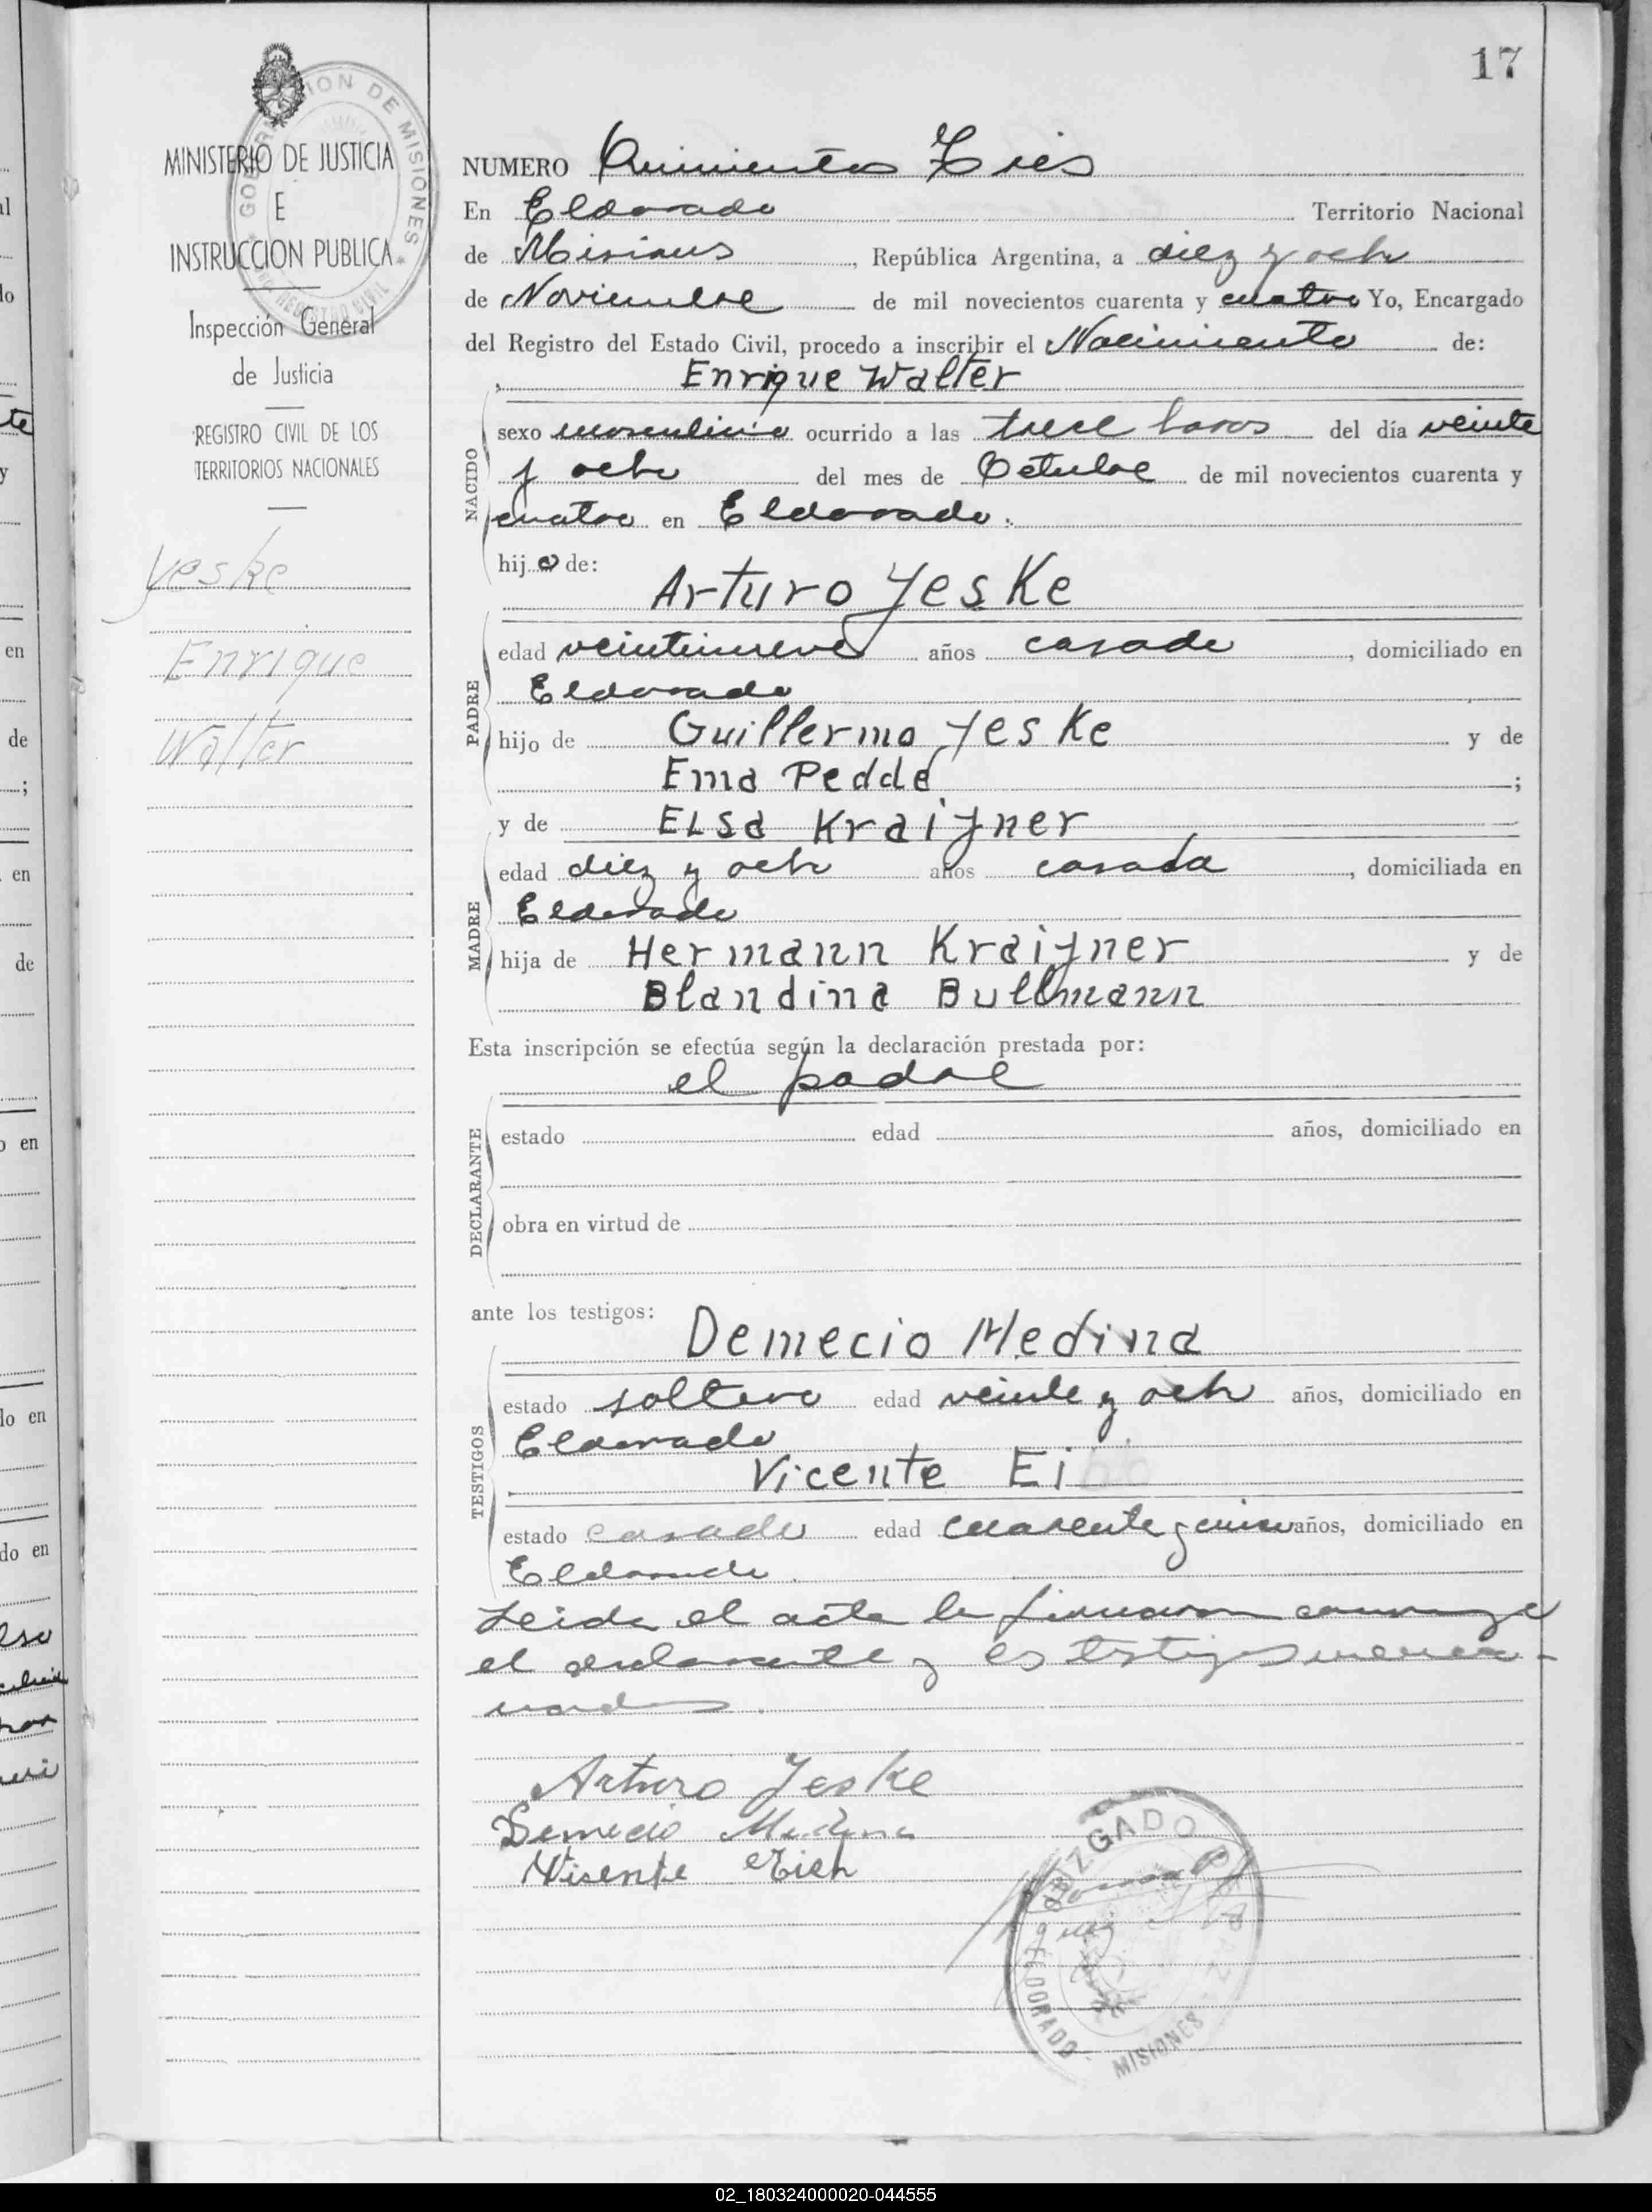 17
MINISTERIO DE JUSTICIA
E
INSTRUCCION PUBLICA
Inspección General
de Justicia
REGISTRO CIVIL DE LOS
TERRITORIOS NACIONALES
GOBERNACION DE MISIONES
REGISTRO CIVIL
Yeske
Enrique
Walter
NUMERO Quinientos Tres
En Eldorado Territorio Nacional
de Misiones, República Argentina, a diez y ocho
de Noviembre de mil novecientos cuarenta y cuatro Yo, Encargado
del Registro del Estado Civil, procedo a inscribir el Nacimiento de:
Enrique Walter
NACIDO
sexo masculino ocurrido a las trece horas del día veinte
y ocho del mes de Octubre de mil novecientos cuarenta y
cuatro en Eldorado.
hijo de:
Arturo Yeske
PADRE
edad veintinueve años casado, domiciliado en
Eldorado
hijo de Guillermo Yeske y de
Ema Pedde;
y de Elsa Kraifner
MADRE
edad diez y ocho años casada, domiciliada en
Eldorado
hija de Hermann Kraifner y de
Blandina Bullmann
Esta inscripción se efectúa según la declaración prestada por:
el padre
DECLARANTE
estado edad años, domiciliado en
obra en virtud de
ante los testigos:
Demecio Medina
TESTIGOS
estado soltero edad veinte y ocho años, domiciliado en
Eldorado
Vicente Ei
estado casado edad cuarenta y cinco años, domiciliado en
Eldorado
Leida el acta la firmaron conmigo
el declarante y los testigos mencio-
nados.
Arturo Yeske
Demecio Medina
Visente Eich
JUZGADO DE PAZ
ELDORADO MISIONES
02_180324000020-044555